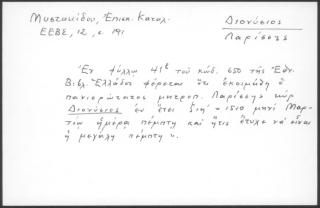 Μυστακίδου, Ἐπισκ. Καταλ.
ΕΕΒΣ, 12, σ. 191
Διονύσιος
Λαρίσσης
Ἐν φύλλῳ 41β τοῦ κώδ. 650 τῆς Ἐθν.
Βιβλ. Ἑλλάδος φέρεται ὅτι ἐκοιμήθη ὁ
πανιερώτατος μητροπ. Λαρίσσης κὺρ
Διονύσιος ἐν ἔτει ζιη' = 1510 μηνὶ Μαρ-
τίῳ ἡμέρᾳ πέμπτῃ καὶ ἥτις ἔτυχε νὰ εἶναι
ἡ μεγάλη πέμπτη».